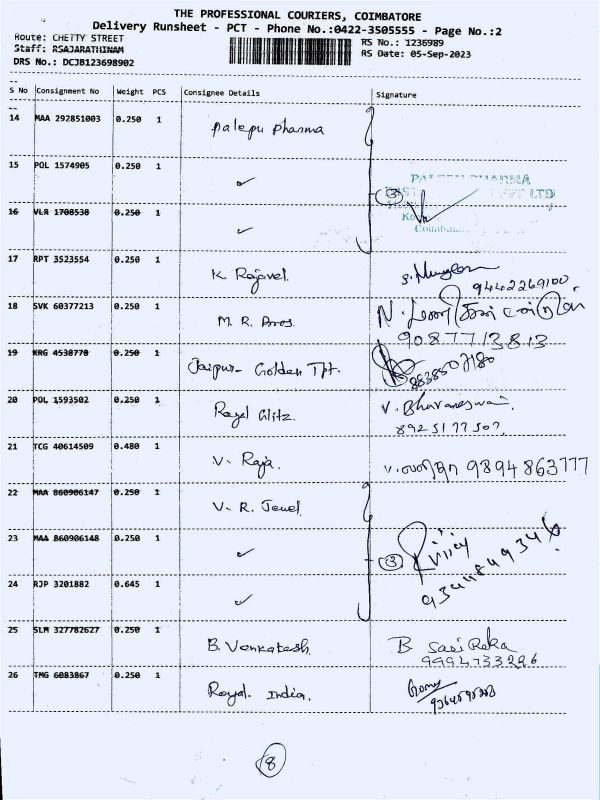 THE PROFESSIONAL COURIERS, COIMBATORE
Delivery Runsheet - PCT - Phone No.:0422-3505555 - Page No.:2
Route: CHETTY STREET
RS No.: 1236989
Staff: RSAJARATHINAM
RS Date: 05-Sep-2023
DRS No.: DCJB123698902
S No Consignment No Weight PCS Consignee Details Signature
14 MAA 292851003 0.250 1 Palepu Pharma
15 POL 1574905 0.250 1 ✓ 3
16 VLR 1708538 0.250 1 ✓
17 RPT 3523554 0.250 1 K. Rajavel. 9442269100
18 SVK 60377213 0.250 1 M. R. Bros. N.
9087713813
19 KRG 4538778 0.250 1 Jaipur- Golden Tpt.
20 POL 1593502 0.250 1 Royal Glitz. V. Bhuvaneswari.
8925177507.
21 TCG 40614509 0.480 1 V. Raja. 9894863777
22 MAA 860906147 0.250 1 V. R. Jewel.
23 MAA 860906148 0.250 1 ✓ 3
24 RJP 3201882 0.645 1 ✓
25 SLM 327782627 0.250 1 B. Venkatesh. B. Sasi Reka
9994733286
26 TMG 6083867 0.250 1 Royal. India.
8